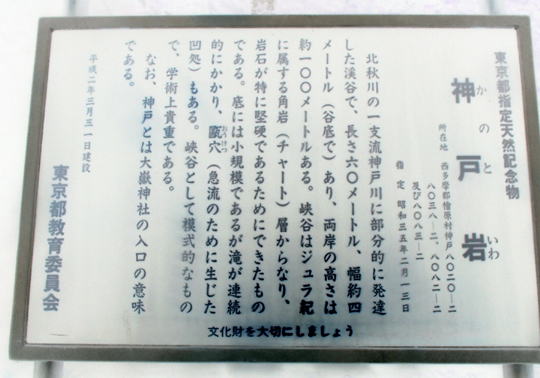 東京都指定天然記念物
神戸岩
かのといわ
所在地 西多摩郡檜原村神戸八〇二〇ー二
八〇三八ー二、八〇八二ー二
及び八〇八三ー二
指定 昭和三五年二月一三日
北秋川の一支流神戸川に部分的に発達
した渓谷で、長さ六〇メートル、幅約四
メートル（谷底で）あり、両岸の高さは
約一〇〇メートルある。峡谷はジュラ紀
に属する角岩（チャート）層からなり、
岩石が特に堅硬であるためにできたもの
である。底には小規模であるが滝が連続
的にかかり、甌穴（急流のために生じた
おうけつ
凹処）もある。峡谷として模式的なもの
で、学術上貴重である。
なお、神戸とは大嶽神社の入口の意味
である。
平成二年三月三一日建設
東京都教育委員会
文化財を大切にしましょう